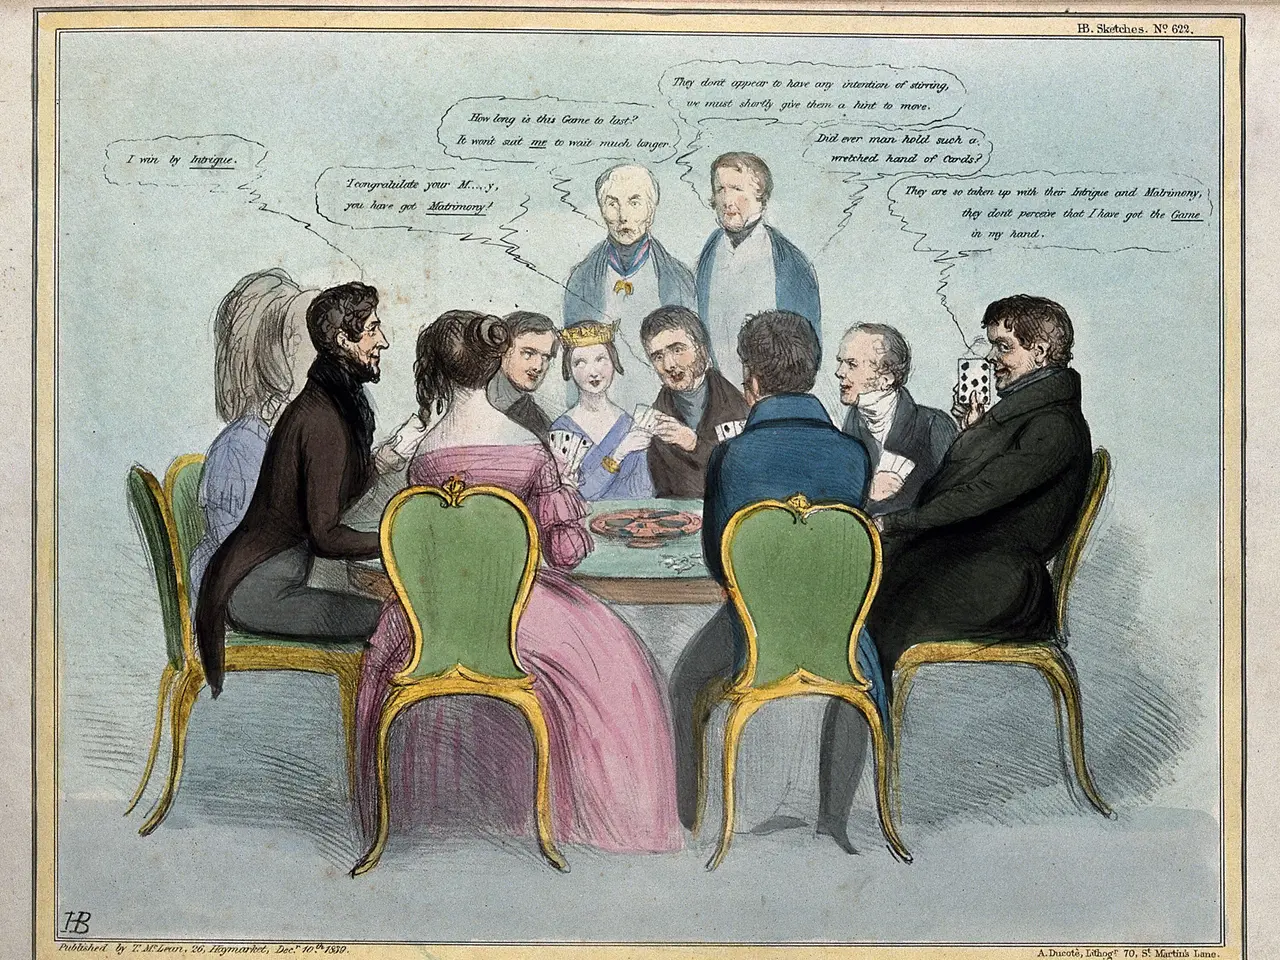 HB. Sketches. No. 622.
They don't appear to have any intention of stirring,
we must shortly give them a hint to move.
How long is this Game to last?
It won't suit me to wait much longer.
Did ever man hold such a
wretched hand of Cards?
I win by Intrigue.
I congratulate your M....y,
you have got Matrimony!
They are so taken up with their Intrigue and Matrimony,
they don't perceive that I have got the Game
in my hand.
HB
Published by T. McLean, 26, Haymarket, Decr. 10th 1839.
A. Ducotè, Lithogr. 70, St. Martin's Lane.